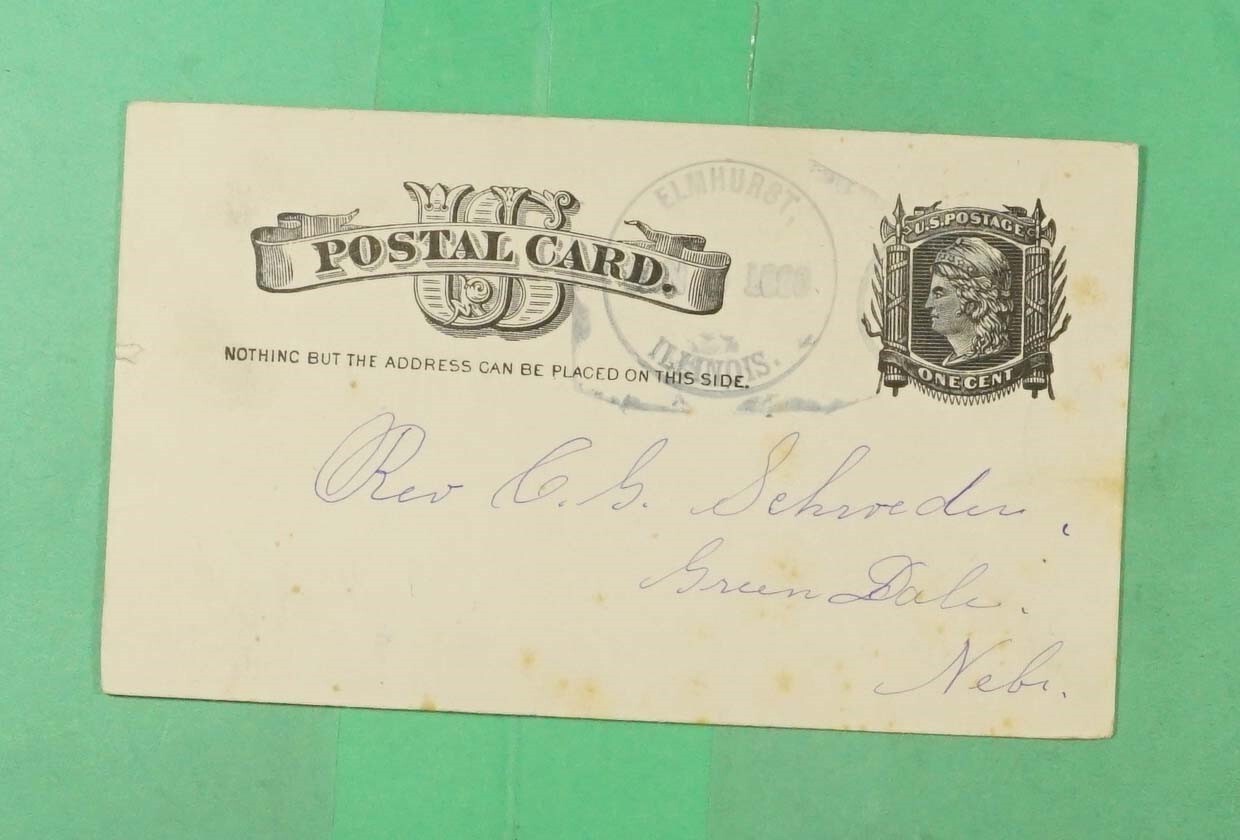 US
POSTAL CARD.
NOTHING BUT THE ADDRESS CAN BE PLACED ON THIS SIDE.
ELMHURST,
ILLINOIS.
U.S. POSTAGE
ONE CENT
Rev C. G. Schroeder,
Green Dale.
Nebr.